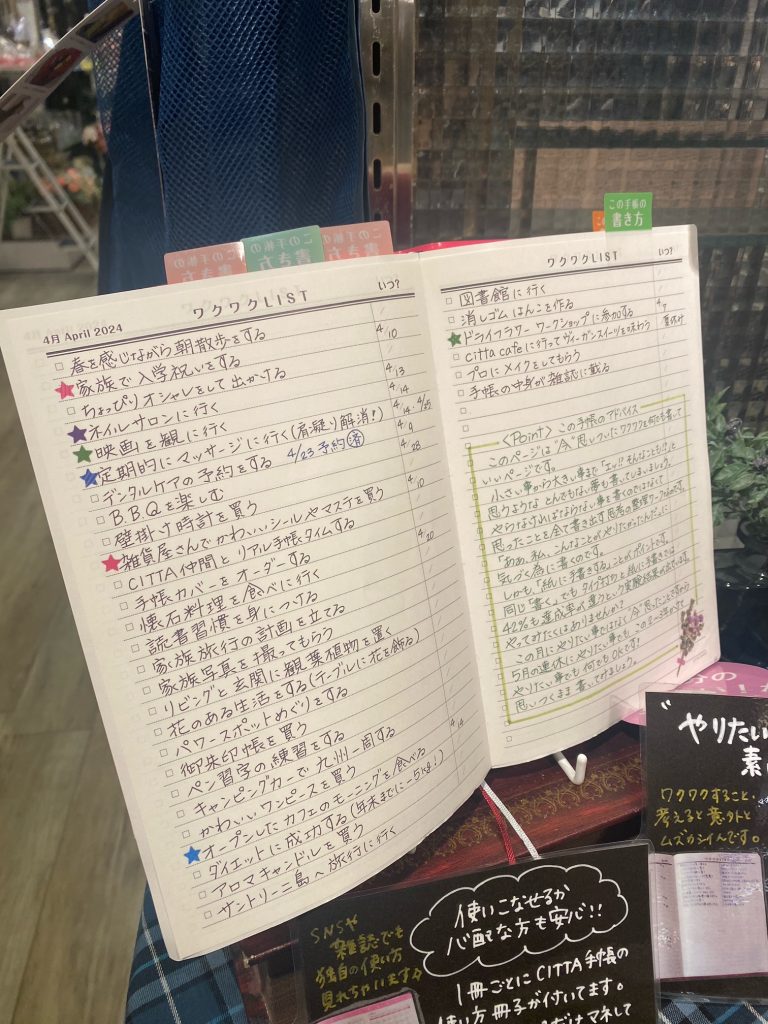 この手帳の
書き方
この手帳の
書き方
この手帳の
書き方
この手帳の
書き方
ワクワクLIST
いつ?
4月 April 2024
春を感じながら朝散歩をする
家族で入学祝いをする 4/10
ちょっぴりオシャレをして出かける
ネイルサロンに行く 4/13
映画を観に行く 4/14
定期的にマッサージに行く(肩凝り解消!) 4/14・4/25
デンタルケアの予約をする 4/23 予約済 4/9
B.B.Qを楽しむ 4/28
壁掛け時計を買う
雑貨屋さんでかわいいシールやマステを買う 4/10
CITTA仲間とリアル手帳タイムする
手帳カバーをオーダーする
懐石料理を食べに行く 4/20
読書習慣を身につける
家族旅行の計画を立てる
家族写真を撮ってもらう
リビングと玄関に観葉植物を置く
花のある生活をする(テーブルに花を飾る)
パワースポットめぐりをする
御朱印帳を買う
ペン習字の練習をする
キャンピングカーで九州一周する
かわいいワンピースを買う 4/14
オープンしたカフェのモーニングを食べる
ダイエットに成功する(年末までに−5kg!)
アロマキャンドルを買う
サントリーニ島へ旅行に行く
ワクワクLIST
いつ?
図書館に行く
消しゴムはんこを作る
ドライフラワー ワークショップに参加する 4/7
citta cafeに行ってヴィーガンスイーツを味わう 夏休み
プロにメイクをしてもらう
手帳の中身が雑誌に載る
〈Point〉この手帳のアドバイス
このページは"今"思いついたワクワクを何でも書いて
いいページです。
小さい事から大きい事まで「エッ!?そんなことも!?」と
思うような とんでもない夢も書いてしまいましょう。
やらなければならない事を書くのではなくて
思ったことを全て書き出す思考の整理ワークなのです。
「ああ、私、こんなことがやりたかったんだっ」に
気づく為に書くのです。
しかも、「紙に手書きする」ことがポイントです。
同じ「書く」でもタイプ打ちと紙に手書きでは
42%も達成率が違うという実験結果が出ています。
やってみたくはありませんか?
この月にやりたい事ではなく"今"思ったことですから
5月の連休にやりたい事でも
やりたい事でも 何でもOKです!
思いつくまま 書いてみましょう。
"やりたい
ワクワクすること、
考えると意外と
ムズカシイんです。
使いこなせるか
心配な方も安心!!
SNSや
雑誌でも
独自の使い方
見れちゃいます♪
1冊ごとにCITTA手帳の
使い方冊子が付いてます。
だけマネして